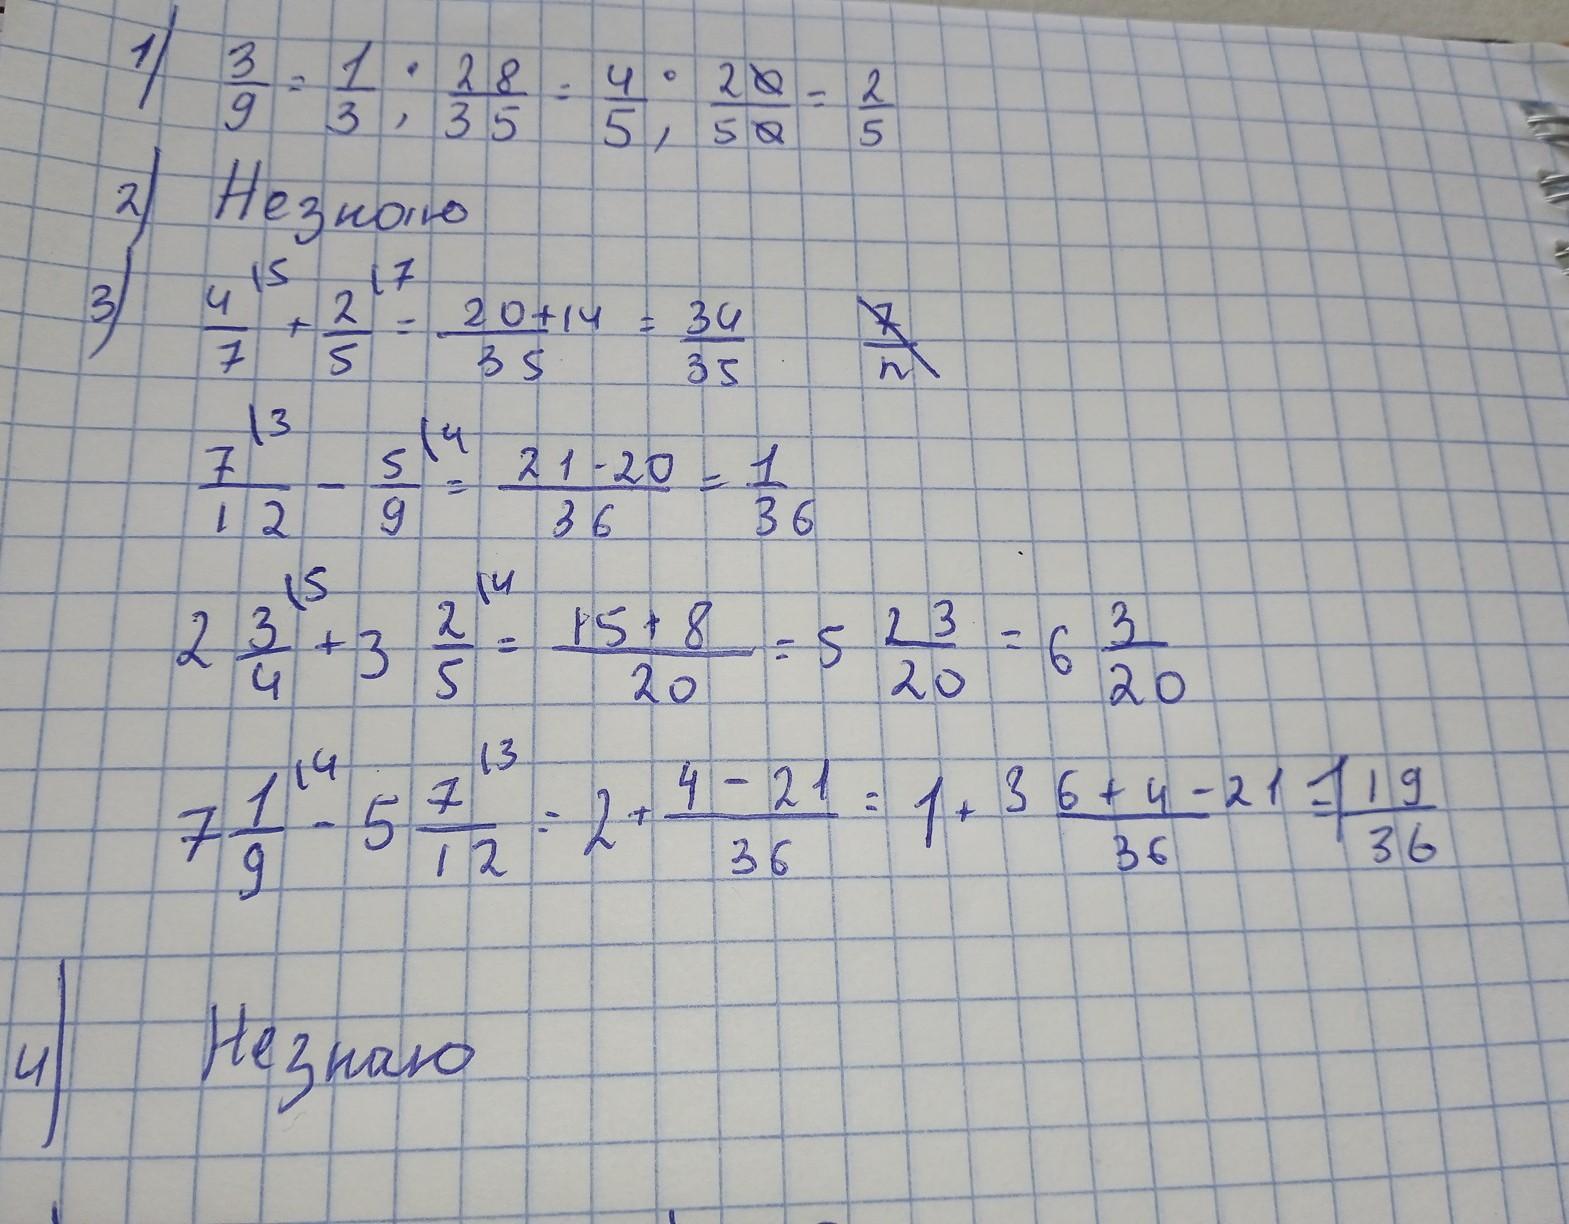 1) 3/9 = 1/3 ; 28/35 = 4/5 ; 20/50 = 2/5
2) Не знаю
3) 4/7 \5 + 2/5 \7 = 20+14/35 = 34/35 7/12
7/12 \3 - 5/9 \4 = 21-20/36 = 1/36
2 3/4 \5 + 3 2/5 \4 = 15+8/20 = 5 23/20 = 6 3/20
7 1/9 \4 - 5 7/12 \3 = 2 + 4-21/36 = 1 + 36+4-21/36 = 1 19/36
4) Не знаю